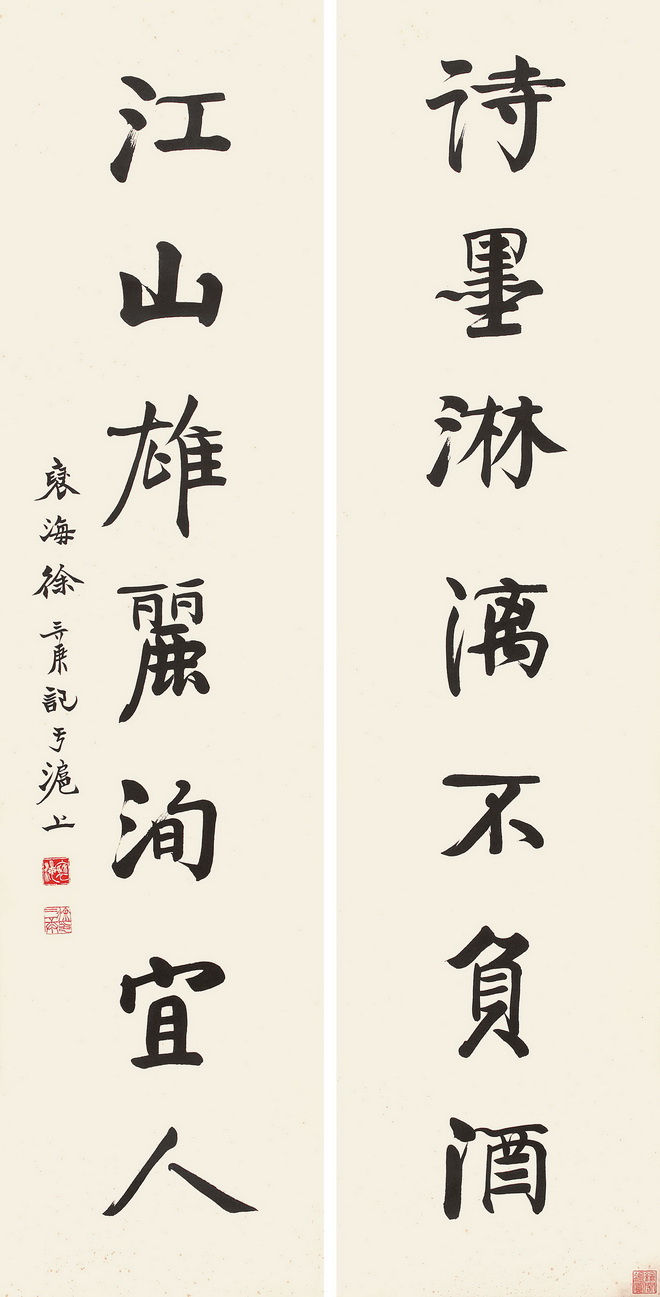 詩墨淋漓不負酒
江山雄麗洵宜人
襄海徐三庚記于滬上